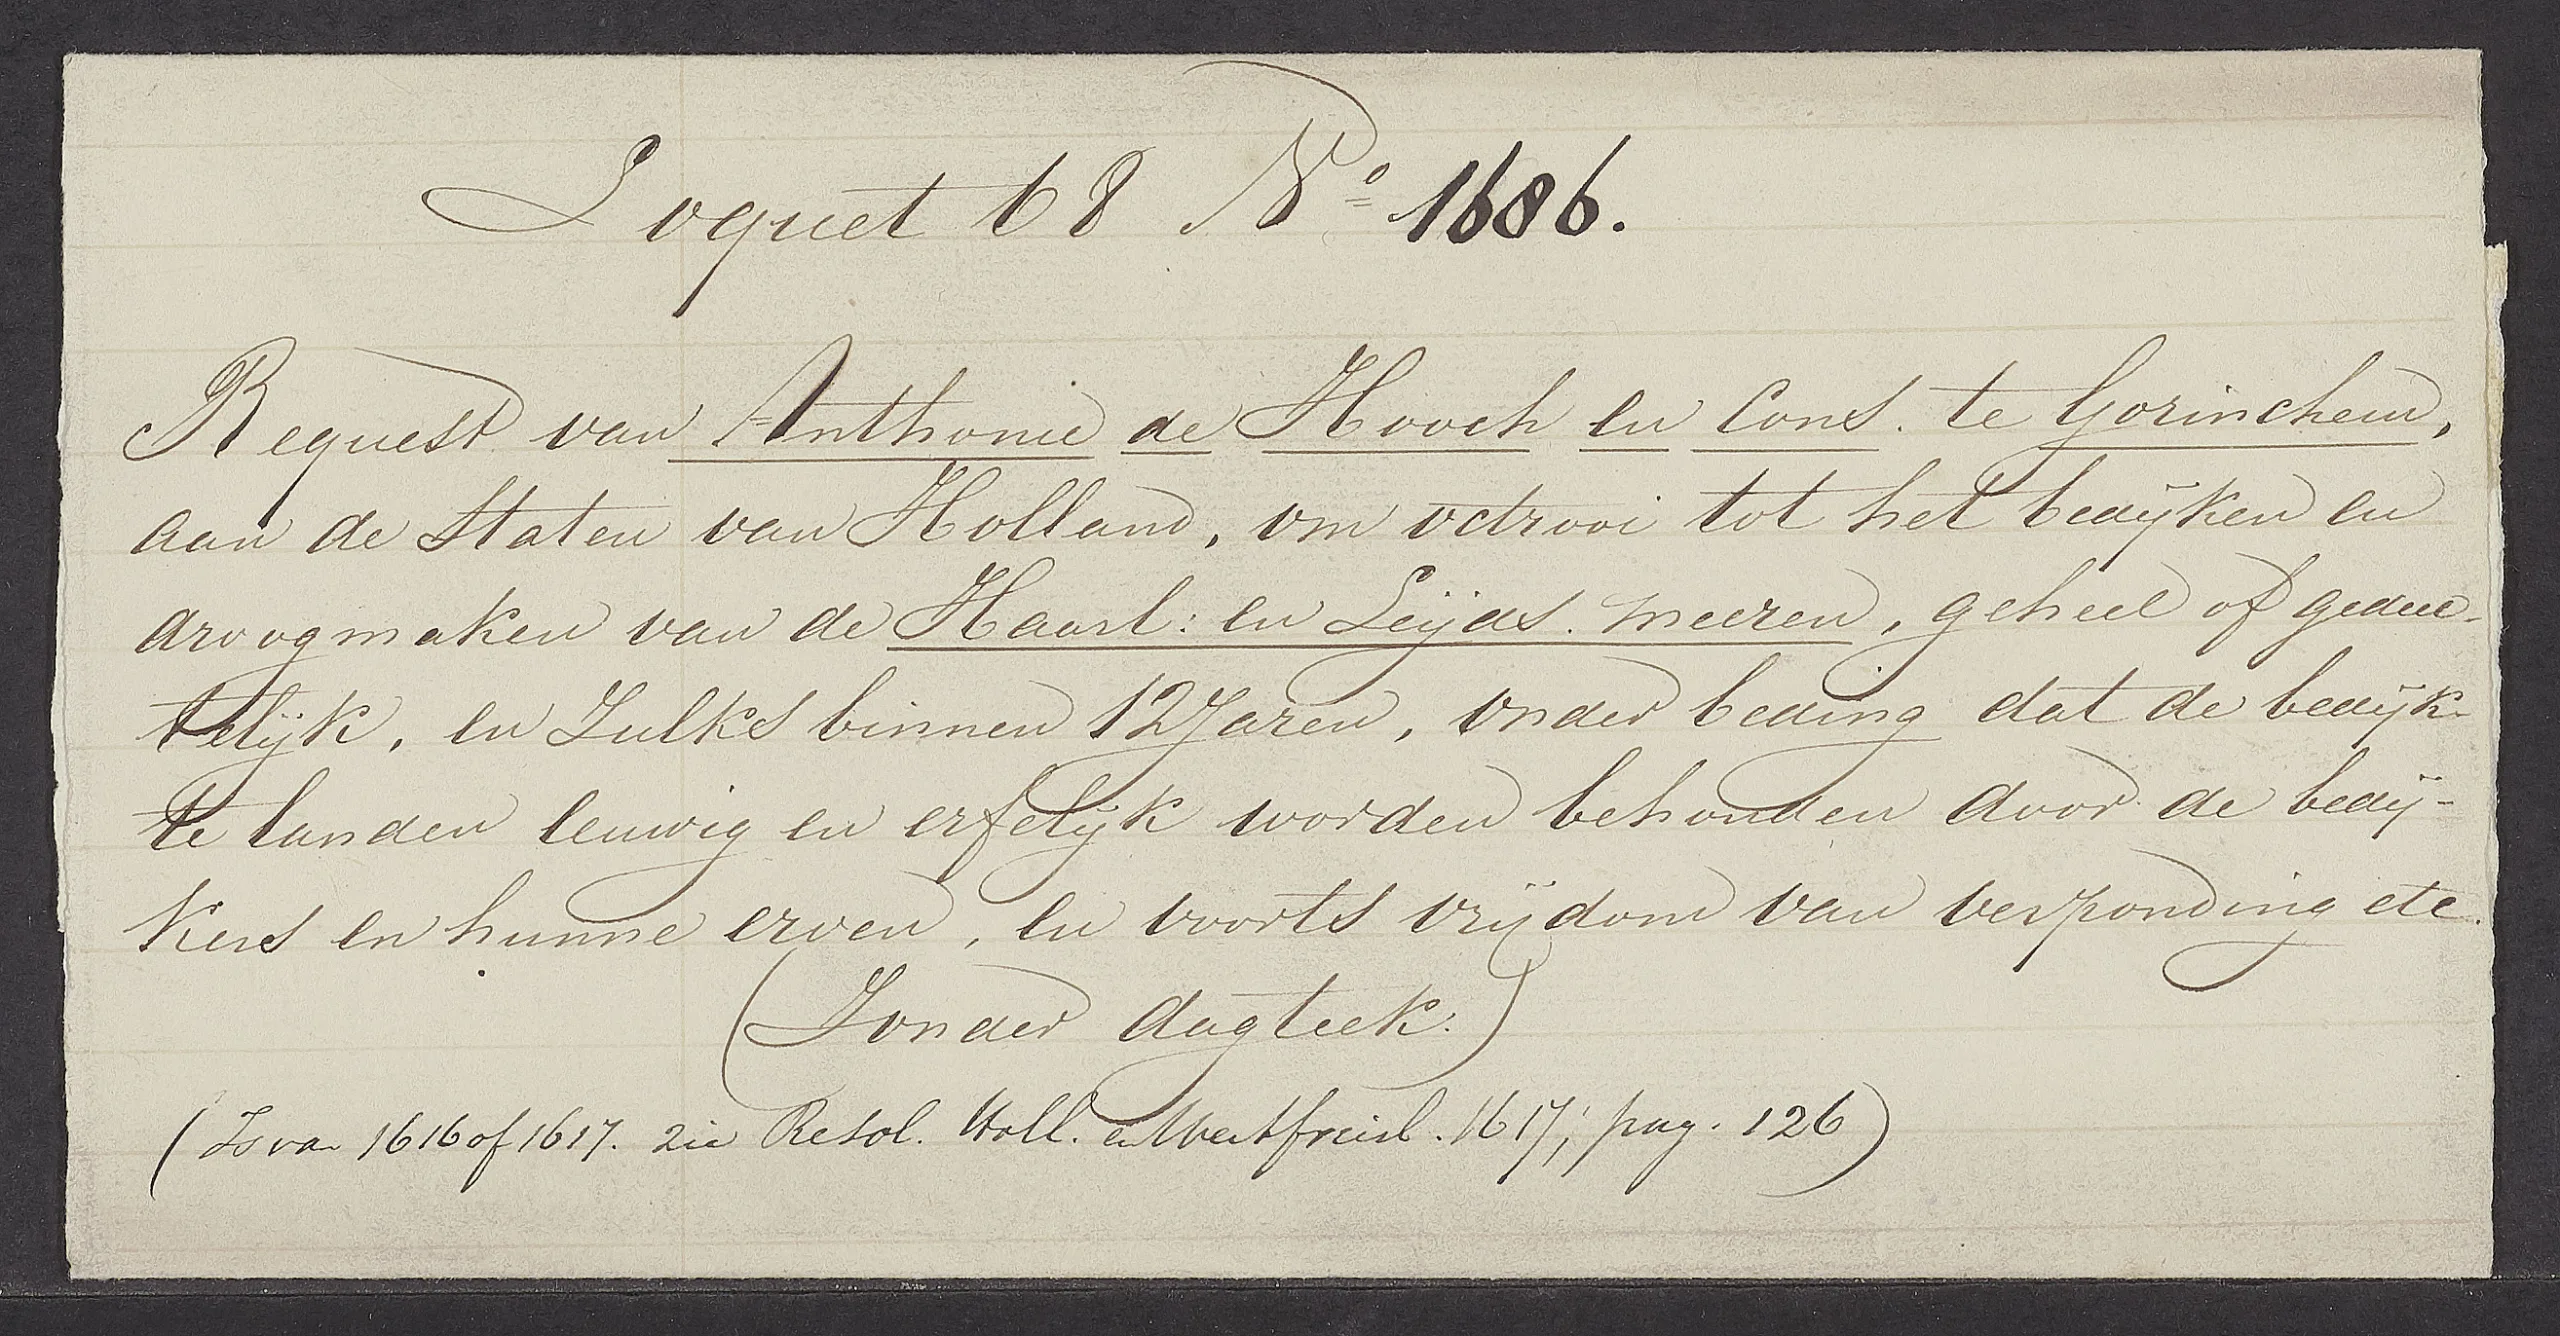 Loquet 68 Nº 1686.
Request van Anthonie de Hooch en Cons. te Gorinchem,
aan de Staten van Holland, om octrooi tot het bedijken en
droogmaken van de Haarl: en Leijds. meeren, geheel of gedee-
telijk, en Zulks binnen 12 Jaren, onder beding dat de bedijk-
te landen eeuwig en erfelijk worden behouden door de bedij-
kers en hunne erven, en voorts vrijdom van verponding etc.
(Zonder dagteek.)
(Is van 1616 of 1617. zie Resol. Holl. en Westfriesl. 1617, pag. 126)